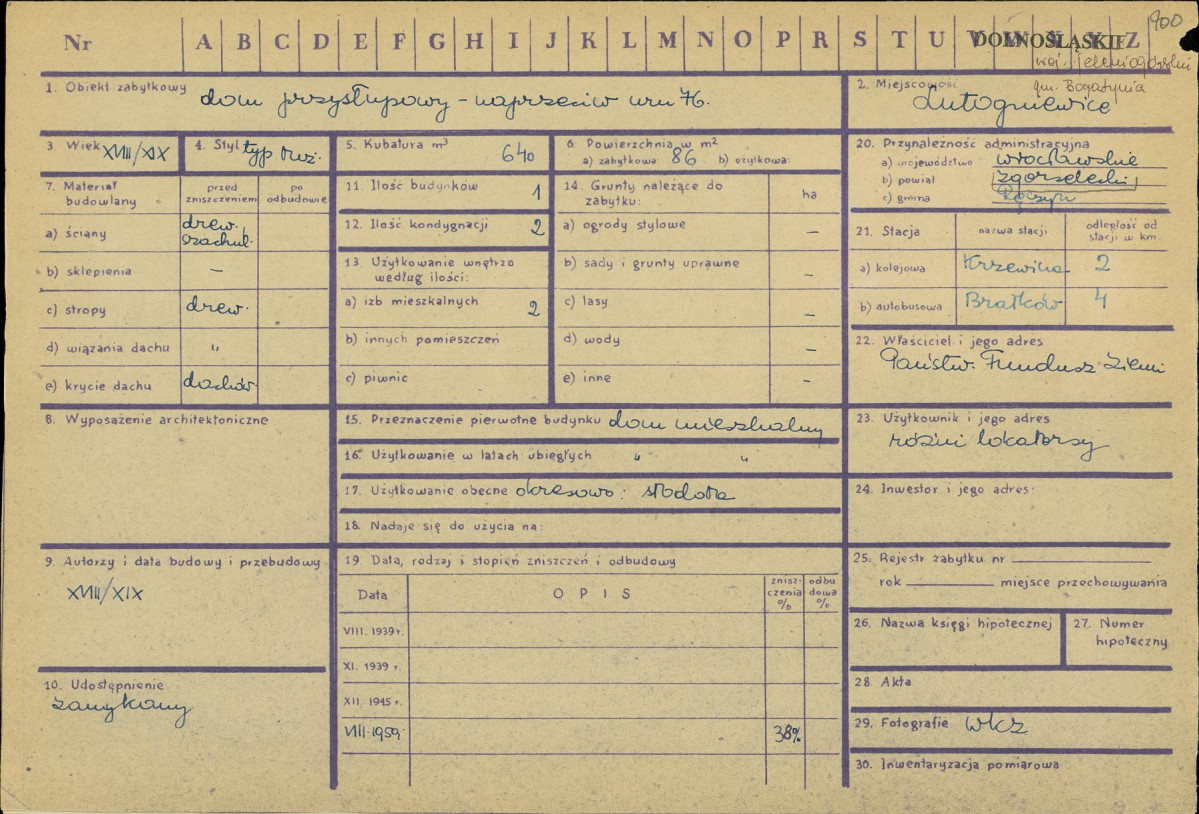 900
Nr A B C D E F G H I J K L M N O P R S T U V W X Y Z
DOLNOŚLĄSKIE
woj. jeleniogórskie
gm. Bogatynia
1. Obiekt zabytkowy
dom przysłupowy - naprzeciw nru 76.
2. Miejscowość
Lutogniewice
3. Wiek XVIII/XIX
4. Styl typ łuż.
5. Kubatura m³ 640
6. Powierzchnia w m²
a) zabytkowa: 86 b) użytkowa:
7. Materiał budowlany
przed zniszczeniem
po odbudowie
a) ściany drew. szachul.
b) sklepienia —
c) stropy drew.
d) wiązania dachu "
e) krycie dachu dachów.
8. Wyposażenie architektoniczne
9. Autorzy i data budowy i przebudowy
XVIII/XIX
10. Udostępnienie
zamykany
11. Ilość budynków 1
12. Ilość kondygnacji 2
13. Użytkowanie wnętrza według ilości:
a) izb mieszkalnych 2
b) innych pomieszczeń
c) piwnic
14. Grunty należące do zabytku: ha
a) ogrody stylowe —
b) sady i grunty uprawne —
c) lasy —
d) wody —
e) inne —
15. Przeznaczenie pierwotne budynku dom mieszkalny
16. Użytkowanie w latach ubiegłych " "
17. Użytkowanie obecne okresowo: stodoła
18. Nadaje się do użycia na:
19. Data, rodzaj i stopień zniszczeń i odbudowy
Data OPIS zniszczenia % odbudowa %
VIII. 1939 r.
XI. 1939 r.
XII. 1945 r.
VIII. 1959 38%
20. Przynależność administracyjna
a) województwo wrocławskie
b) powiat zgorzelecki
c) gmina
21. Stacja nazwa stacji odległość od stacji w km.
a) kolejowa Krzewina 2
b) autobusowa Bratków 4
22. Właściciel i jego adres
Państw. Fundusz Ziemi
23. Użytkownik i jego adres
różni lokatorzy
24. Inwestor i jego adres:
25. Rejestr zabytku nr
rok miejsce przechowywania
26. Nazwa księgi hipotecznej
27. Numer hipoteczny
28. Akta
29. Fotografie WKZ
30. Inwentaryzacja pomiarowa